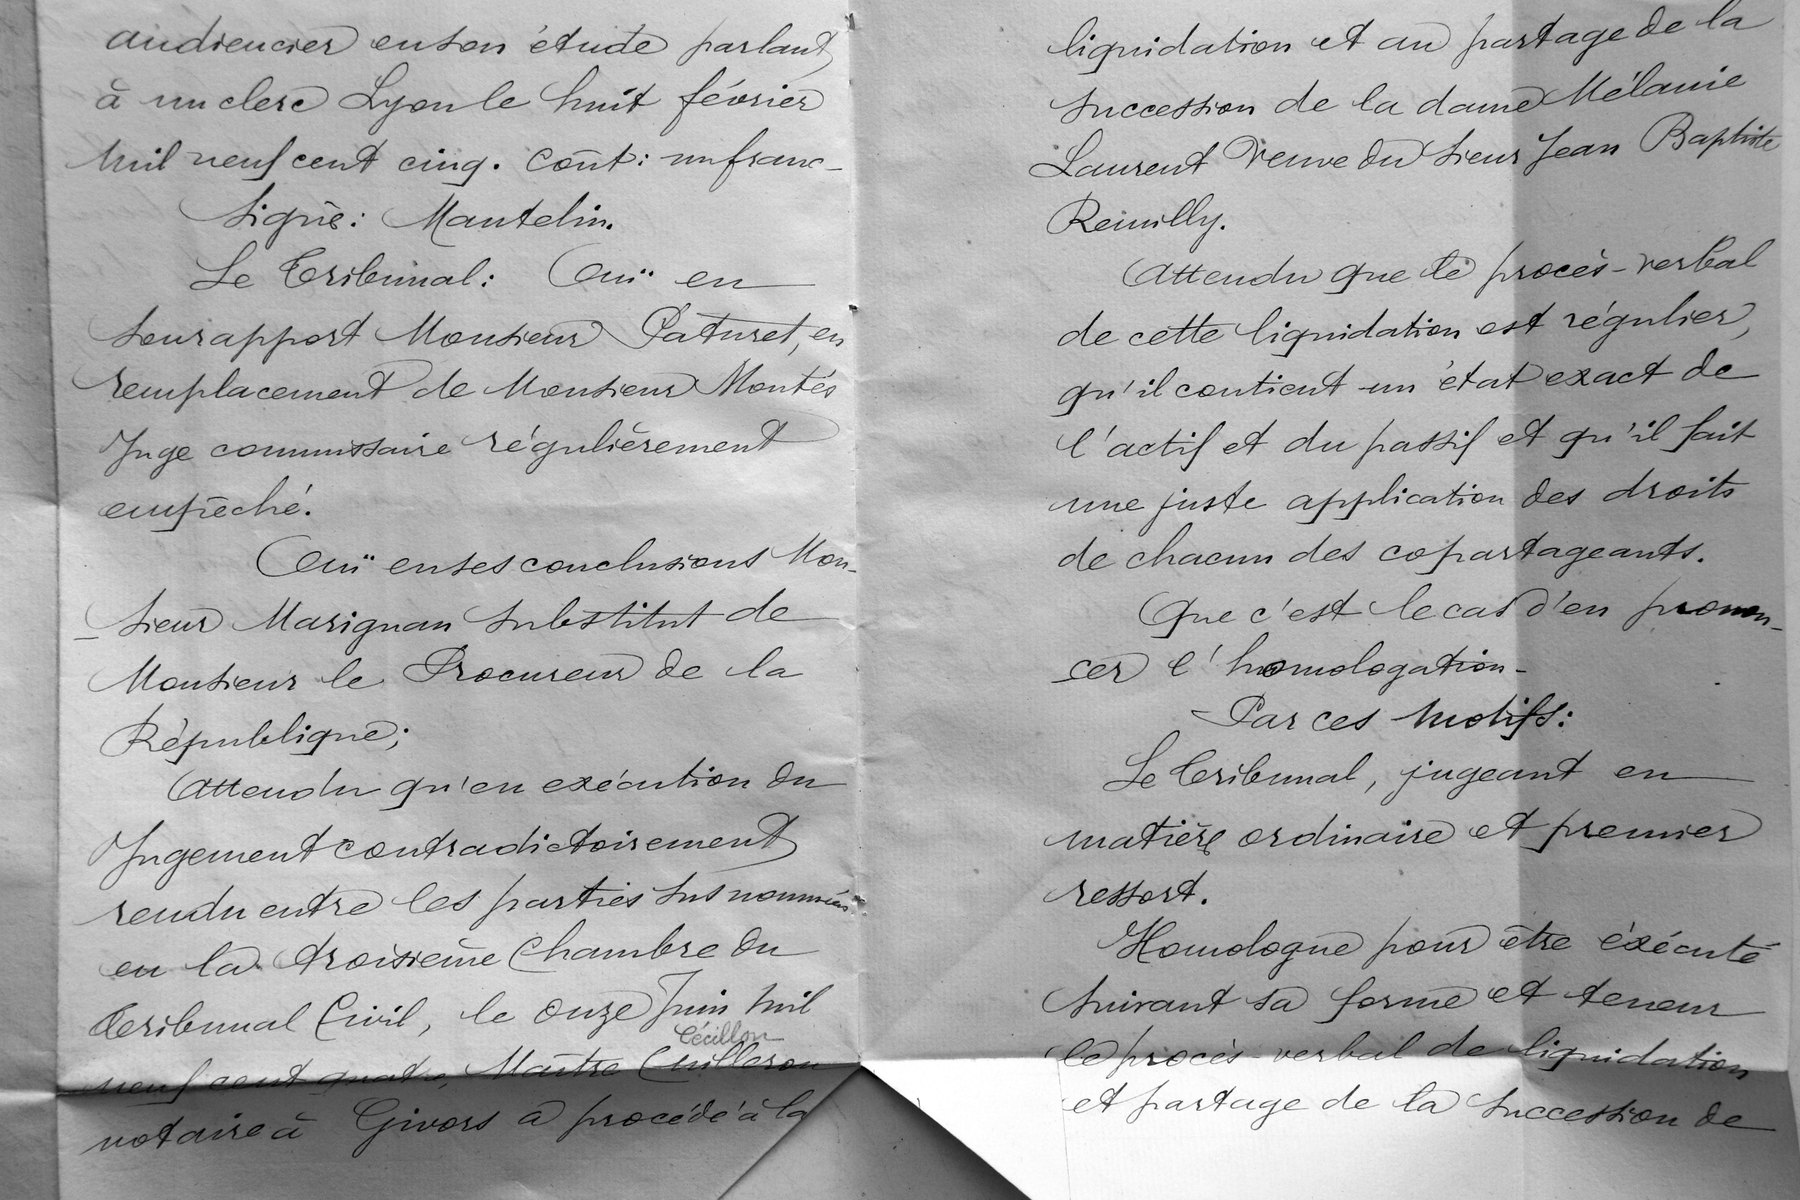 audiencier en son étude parlant
à un clerc Lyon le huit février
mil neuf cent cinq. Coût: un franc -
Signé: Mantelin.
Le Tribunal: Ouï en
son rapport Monsieur Paturet, en
remplacement de Monsieur Montés
Juge commissaire régulièrement
empêché.
Ouï en ses conclusions Mon-
-sieur Marignan Substitut de
Monsieur le Procureur de la
République;
Attendu qu'en exécution du
Jugement contradictoirement
rendu entre les parties sus nommées
en la troisième Chambre du
Tribunal Civil, le onze Juin mil
Cécillon
neuf cent quatre, Maître Cuilleron
notaire à Givors a procédé à la
liquidation et au partage de la
succession de la dame Mélanie
Laurent Veuve du sieur Jean Baptiste
Reuilly.
Attendu que le procès-verbal
de cette liquidation est régulier,
qu'il contient un état exact de
l'actif et du passif et qu'il fait
une juste application des droits
de chacun des copartageants.
Que c'est le cas d'en pronon-
cer l'homologation -
Par ces motifs:
Le Tribunal, jugeant en
matière ordinaire et premier
ressort.
Homologue pour être éxécuté
suivant sa forme et teneur
le procès-verbal de liquidation
et partage de la succession de